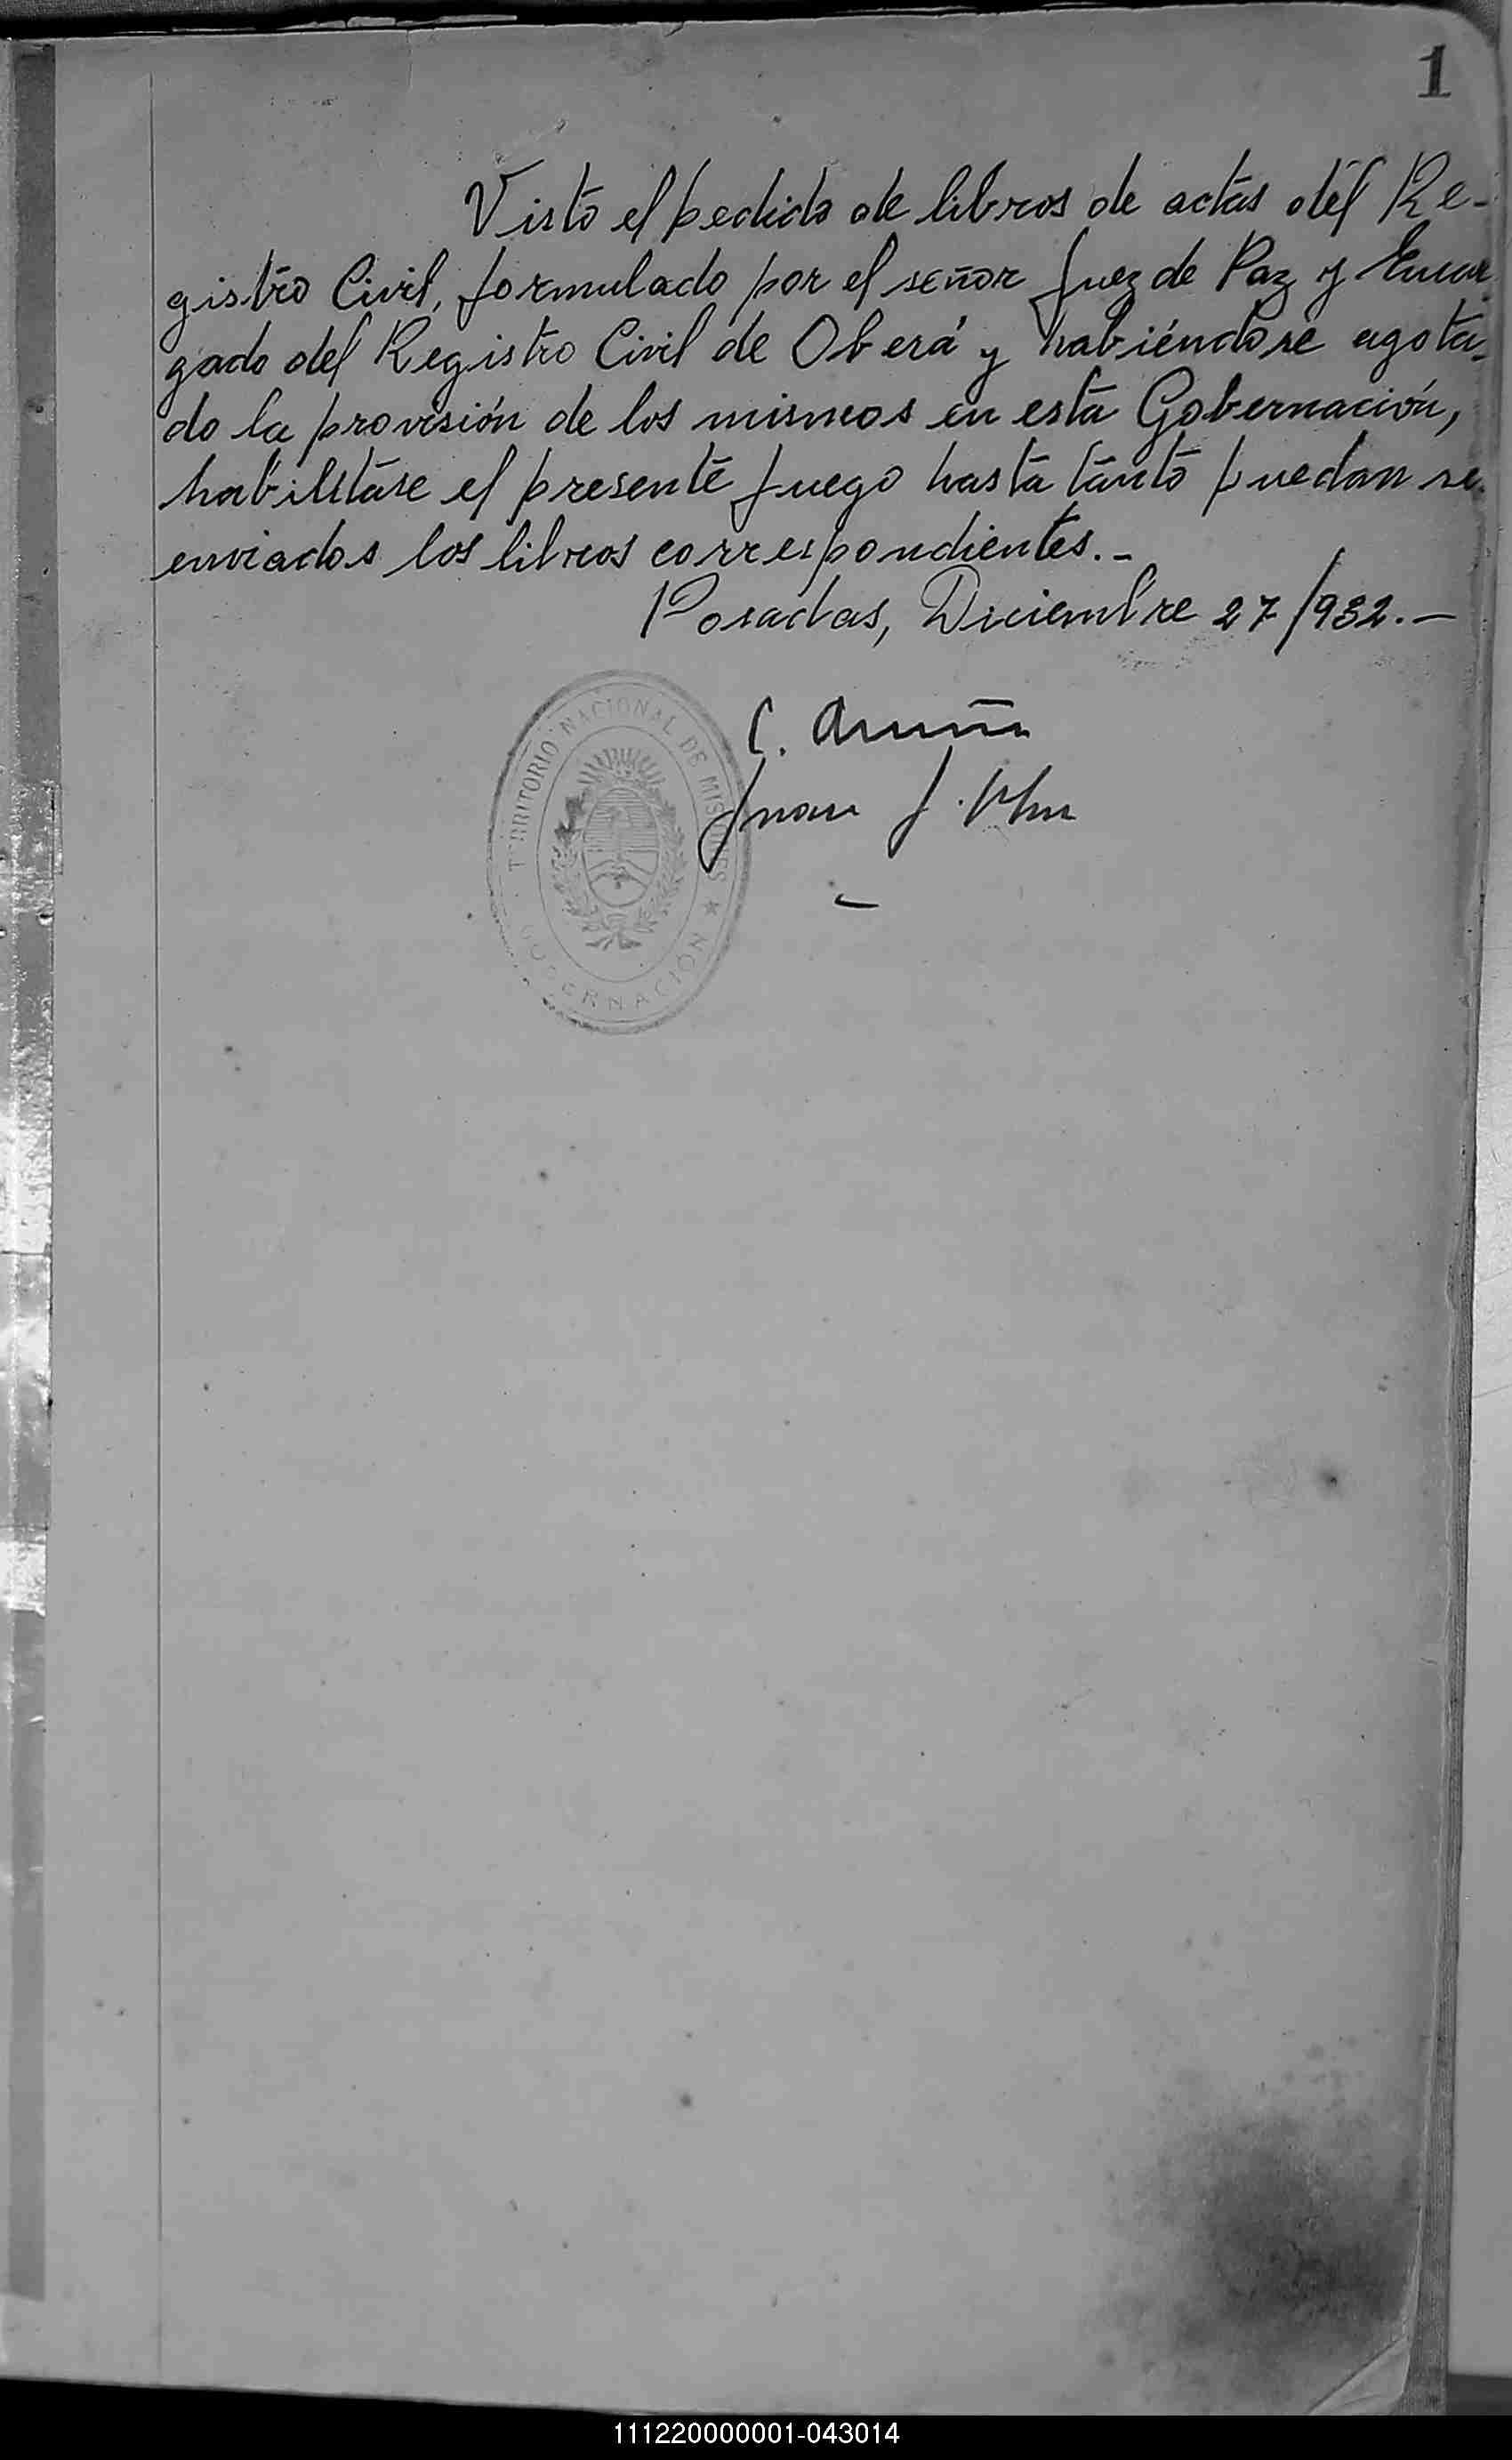 1
Visto el pedido de libros de actas del Re-
gistro Civil, formulado por el señor Juez de Paz y Encar
gado del Registro Civil de Oberá y habiéndose agota-
do la provisión de los mismos en esta Gobernación,
habilitase el presente juego hasta tanto puedan se
enviados los libros correspondientes.-
Posadas, Diciembre 27/932.-
C. Acuña
Juan J.
TERRITORIO NACIONAL DE MISIONES
GOBERNACIÓN
111220000001-043014